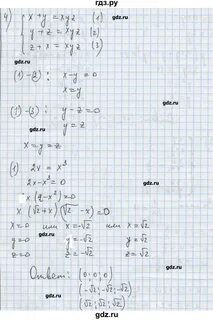 гдз.ру
4) { x + y = xyz (1)
y + z = xyz (2)
z + x = xyz (3)
(1)-(2): x - y = 0
x = y
(1)-(3): y - z = 0
y = z
x = y = z
(1) 2x = x³
2x - x³ = 0
x (2 - x²) = 0
x (√2 + x)(√2 - x) = 0
x = 0 или x = -√2 или x = √2
y = 0 y = -√2 y = √2
z = 0 z = -√2 z = √2
Ответ: (0; 0; 0)
(-√2; -√2; -√2)
(√2; √2; √2)